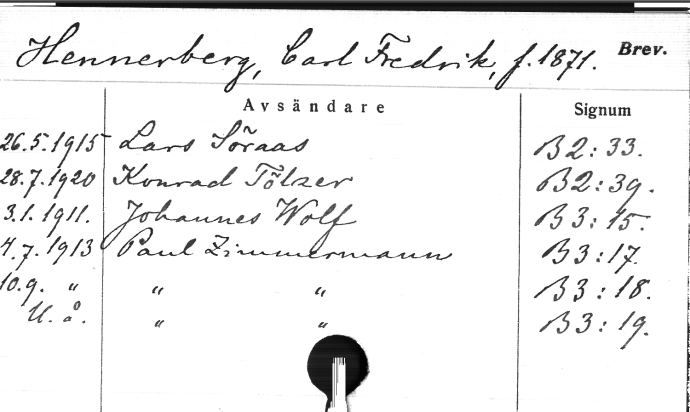 Hennerberg, Carl Fredrik, f. 1871. Brev.
Avsändare Signum
26.5.1915 Lars Söraas B2:33.
28.7.1920 Konrad Tölzer B2:39.
3.1.1911. Johannes Wolf B3:15.
4.7.1913 Paul Zimmermann B3:17.
10.9. " " " B3:18.
U. å. " " B3:19.